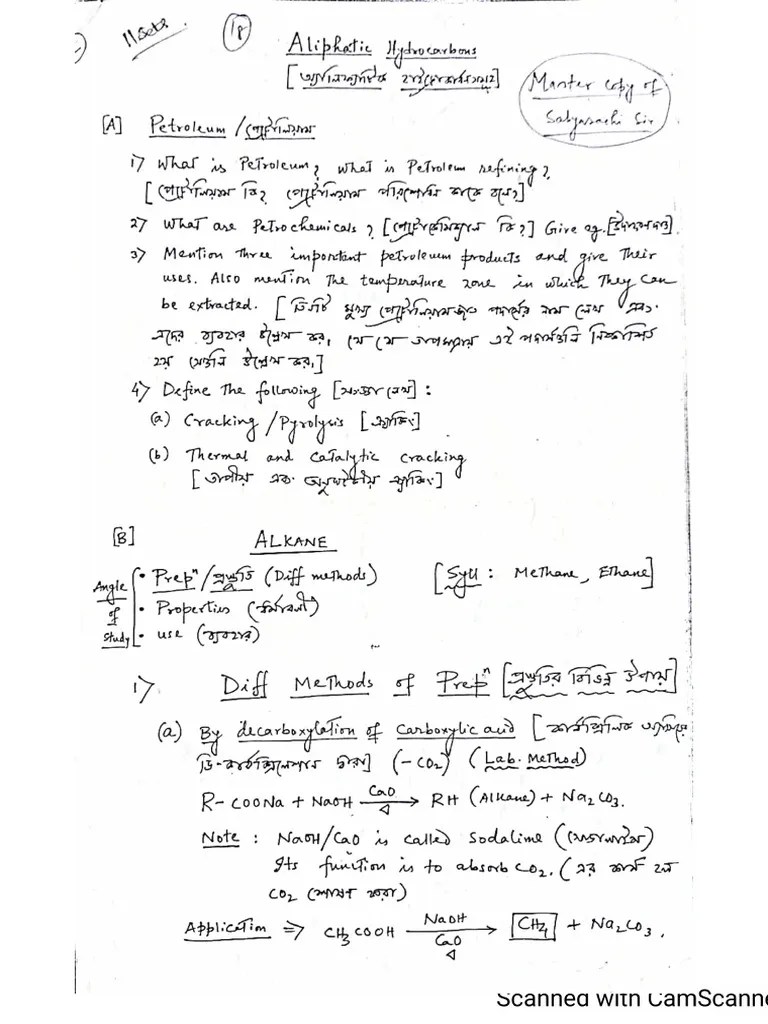 11 Sets.
18
Aliphatic Hydrocarbons
[অ্যালিফ্যাটিক হাইড্রোকার্বনসমূহ]
Master copy of
Satyasachi Sir
[A] Petroleum / পেট্রোলিয়াম
1) What is Petroleum? What is Petroleum refining?
[পেট্রোলিয়াম কি? পেট্রোলিয়াম পরিশোধন কাকে বলে?]
2) What are Petrochemicals? [পেট্রোকেমিক্যাল কি?] Give eg. [উদাহরণ দাও].
3) Mention three important petroleum products and give their
uses. Also mention the temperature zone in which they can
be extracted. [তিনটি মুখ্য পেট্রোলিয়ামজাত পদার্থের নাম লেখ এবং
এদের ব্যবহার উল্লেখ কর, যে যে তাপমাত্রায় এই পদার্থগুলি নিষ্কাশিত
হয় সেগুলি উল্লেখ কর।]
4) Define the following [সংজ্ঞা লেখ] :
(a) Cracking / Pyrolysis [ক্র্যাকিং]
(b) Thermal and catalytic cracking
[তাপীয় এবং অনুঘটকীয় ক্র্যাকিং]
[B] ALKANE
Angle of study
• Prepⁿ / প্রস্তুতি (Diff methods)
[Syll : Methane, Ethane]
• Properties (ধর্মাবলী)
• use (ব্যবহার)
1) Diff Methods of Prepⁿ [প্রস্তুতির বিভিন্ন উপায়]
(a) By decarboxylation of carboxylic acid [কার্বক্সিলিক অ্যাসিডের
ডি-কার্বক্সিলেশান দ্বারা] (-CO₂) (Lab. Method)
R-COONa + NaOH —CaO/Δ→ RH (Alkane) + Na₂CO₃.
Note : NaOH/CaO is called sodalime (সোডালাইম)
Its function is to absorb CO₂. (এর কার্য হল
CO₂ শোষণ করা)
Application ⇒ CH₃COOH —NaOH/CaO/Δ→ CH₄ + Na₂CO₃.
Scanned with CamScanne